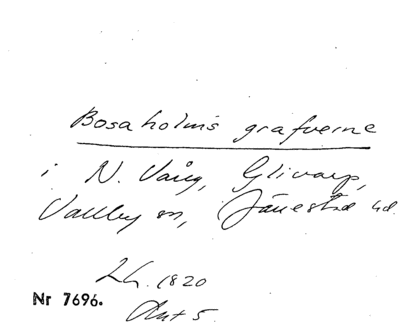 Bosaholms grafverne
i N. Vång, Glivarp,
Vallby sn, Järrestad hd.
Lh. 1820
Nr 7696.
Ant 5